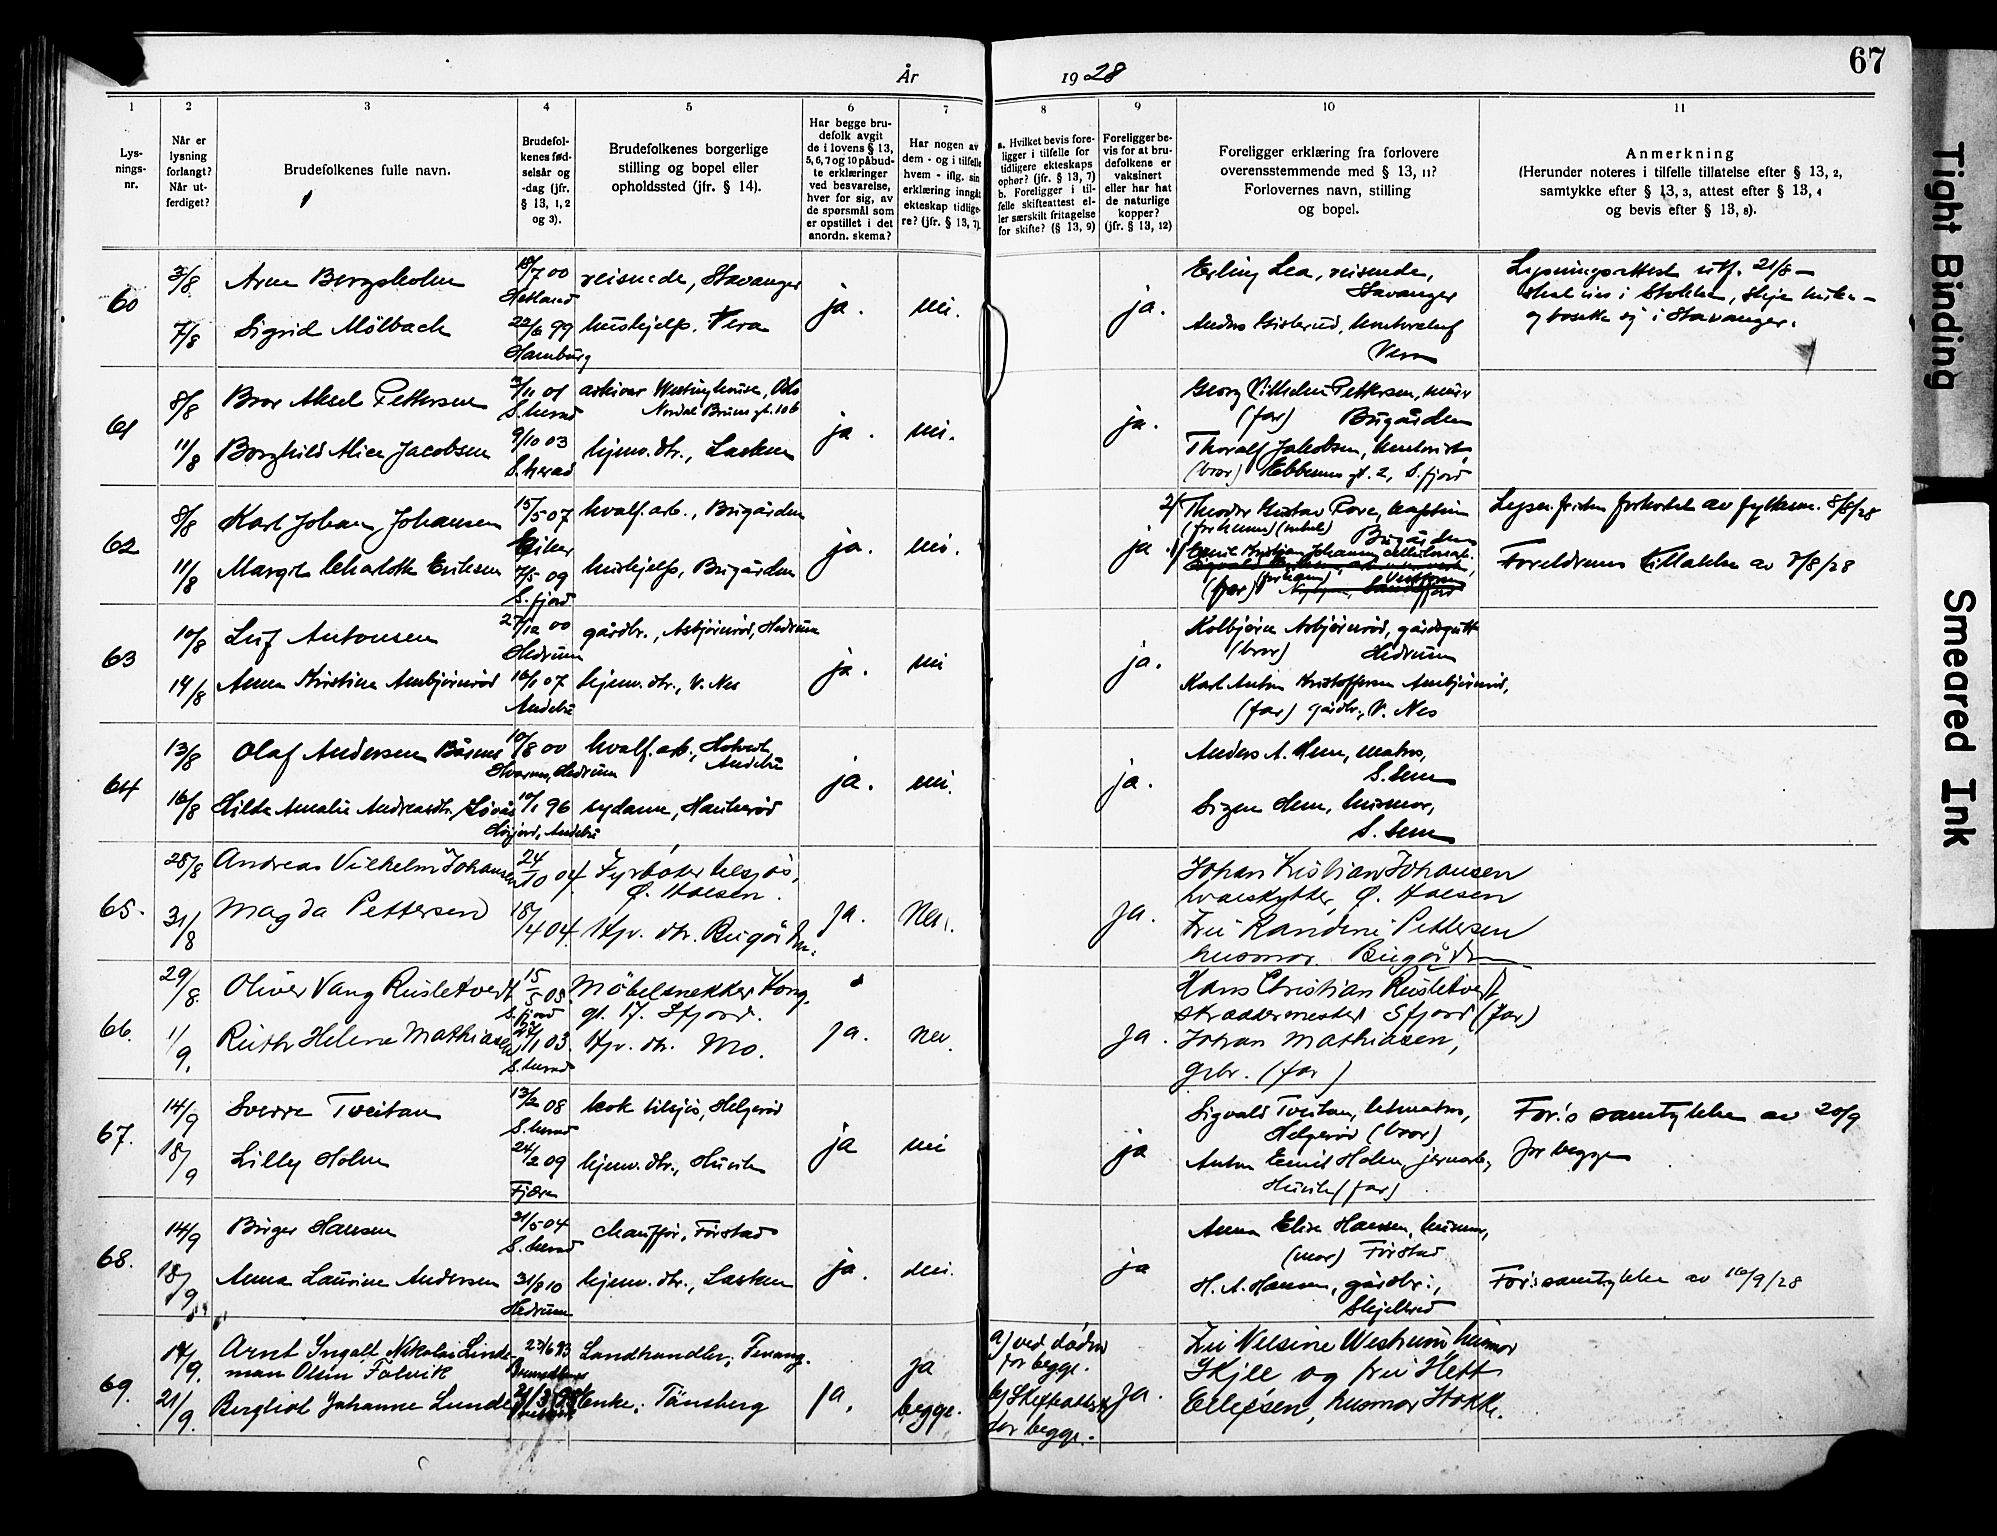 67
År 1928
1 2 3 4 5 6 7 8 9 10 11
Lys-
nings-
nr.
Når er
lysning
forlangt?
Når ut-
ferdiget?
Brudefolkenes fulle navn.
Brudefol-
kenes fød-
selsår og
-dag (jfr.
§ 13, 1, 2
og 3).
Brudefolkenes borgerlige
stilling og bopel eller
opholdssted (jfr. § 14).
Har begge bru-
defolk avgit
de i lovens § 13,
5, 6, 7 og 10 påbud-
te erklæringer
ved besvarelse,
hver for sig, av
de spørsmål som
er opstillet i det
anordn. skema?
Har nogen av
dem - og i tilfelle
hvem - iflg. sin
erklæring inngåt
ekteskap tidlige-
re? (jfr. § 13, 7).
a. Hvilket bevis fore-
ligger i tilfelle for
tidligere ekteskaps
ophør? (jfr. § 13, 7)
b. Foreligger i til-
felle skifteattest el-
ler særskilt fritagelse
for skifte? (§ 13, 9)
Foreligger be-
vis for at bru-
defolkene er
vaksinert
eller har hat
de naturlige
kopper?
(jfr. § 13, 12)
Foreligger erklæring fra forlovere
overensstemmende med § 13, 11?
Forlovernes navn, stilling
og bopel.
Anmerkning
(Herunder noteres i tilfelle tillatelse efter § 13, 2,
samtykke efter § 13, 3, attest efter § 13, 4
og bevis efter § 13, 8).
60
3/8
Arne Bergsholm
18/7 00
Hetland
reisende, Stavanger
ja. nei. ja.
Erling Lea, reisende,
Stavanger
Lysningsattest utf. 21/8 –
i Stokke,
og bosette sig i Stavanger.
7/8
Sigrid Mölbach
22/6 99
Hamburg
hushjelp, Vera
Anders
Vera
61
8/8
Bror Aksel Pettersen
2/11 01
S.herad
arkivar Westinghouse, Oslo
Nordal Bruns gt. 10 b
ja. nei. ja.
Georg Vilhelm Pettersen, murer
(far) Bugården
11/8
Borghild Alice Jacobsen
9/10 03
S.herad
hjemv. dtr., Lasken
Thoralf Jakobsen, kontorist,
(bror) gt. 2, S.fjord
62
8/8
Karl Johan Johansen
15/5 07
Eiker
hvalf. arb., Bugården
ja. nei. ja.
2/ Theodor Gustav Pore,
Bugården
Lysn. fristen forkortet av fylkesm. 8/8/28
11/8
Margit Charlotte Eriksen
7/5 09
S.fjord
hushjelp, Bugården
1/ Emil Kristian Johansen
(far)
Foreldrenes tillatelse av 7/8/28
63
10/8
Leif Antonsen
27/12 00
Hedrum
gårdbr., Asbjørnrød, Hedrum
ja. nei ja.
Kolbjørn Asbjørnrød, gårdsgutt
(bror) Hedrum
14/8
Anna Kristine Anbjørnrød
16/1 07
Andebu
hjemv. dtr., V. Nes
Karl Anton Kristoffersen Anbjørnrød,
(far) gårdbr., V. Nes
64
13/8
Olaf Andersen Båsmo
10/8 00
Hvarnes, Hedrum
hvalf. arb., Hotvedt,
Andebu
ja. nei. ja.
Anders A. Hem, matros,
S. Sem
16/8
Hilda Amalie Andreasdtr.
10/1 96
Høyjord, Andebu
sydame, Haukerød
Signe Hem, husmor,
S. Sem
65.
28/8
Andreas Vilhelm Johansen
24/10 04
Fyrbøter tilsjøs,
Ø. Haasen.
ja. Nei. Ja.
Johan Kristian Johansen
hvalskytter, Ø. Haasen
31/8
Magda Pettersen
18/4 04.
Hjv. dtr. Bugården.
Fru Randine Pettersen
husmor. Bugården
66.
29/8.
Oliver Vang Rusletvedt
15/5 05.
S.fjord
Møbelsnekker Kong.
gt. 17. Sfjord.
ja. nei. Ja.
Hans Christian Rusletvedt,
skreddermester Sfjord (far)
1/9.
Ruth Helene Mathiasen
27/11 03.
S.herad
Hjv. dtr. Mo.
Johan Mathiasen,
gbr. (far)
67.
14/9
Sverre Tveitan
13/2 08
S.herad
kok tilsjøs, Helgerød
ja nei ja
Sigvald Tveitan, letmatros,
Helgerød (bror)
For.s samtykke av 20/9
for begge
18/9
Lilly Holm
24/2 09
Fjære
hjemv. dtr., Husvik
Anton Emil Holm, jernarb.,
Husvik (far)
68.
14/9
Birger Hansen
31/5 04
S.herad
Chauffør, Førstad
ja. nei. ja
Anna Elise Hansen, husmor,
(mor) Førstad
18/9
Anna Laurine Andersen
31/8 10
Hedrum
hjemv. dtr., Lasken
H. A. Hansen, gårdbr.,
Skjellerød
For.s samtykke av 10/9/28
69.
14/9.
Arnt Ingolf Nikolai Linde-
man Olsen Falvik
23/6 93
Landhandler, Finang.
ja, ja
begge.
a) ved døden
for begge.
b) Skifteattest
for begge.
Ja.
Fru Nelsine Westrum, husmor
Skjee og fru Hett
Ellefsen, husmor Stokke.
21/9.
Bergliot Johanne Lunde
21/3 98
Enke, Tønsberg
Tight Binding
Smeared Ink